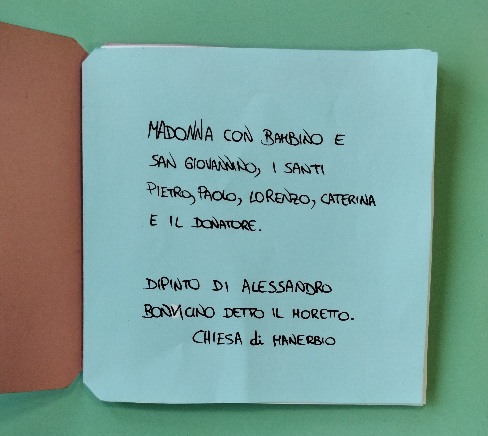 MADONNA CON BAMBINO E
SAN GIOVANNINO, I SANTI
PIETRO, PAOLO, LORENZO, CATERINA
E IL DONATORE.
DIPINTO DI ALESSANDRO
BONVICINO DETTO IL MORETTO.
CHIESA di MANERBIO